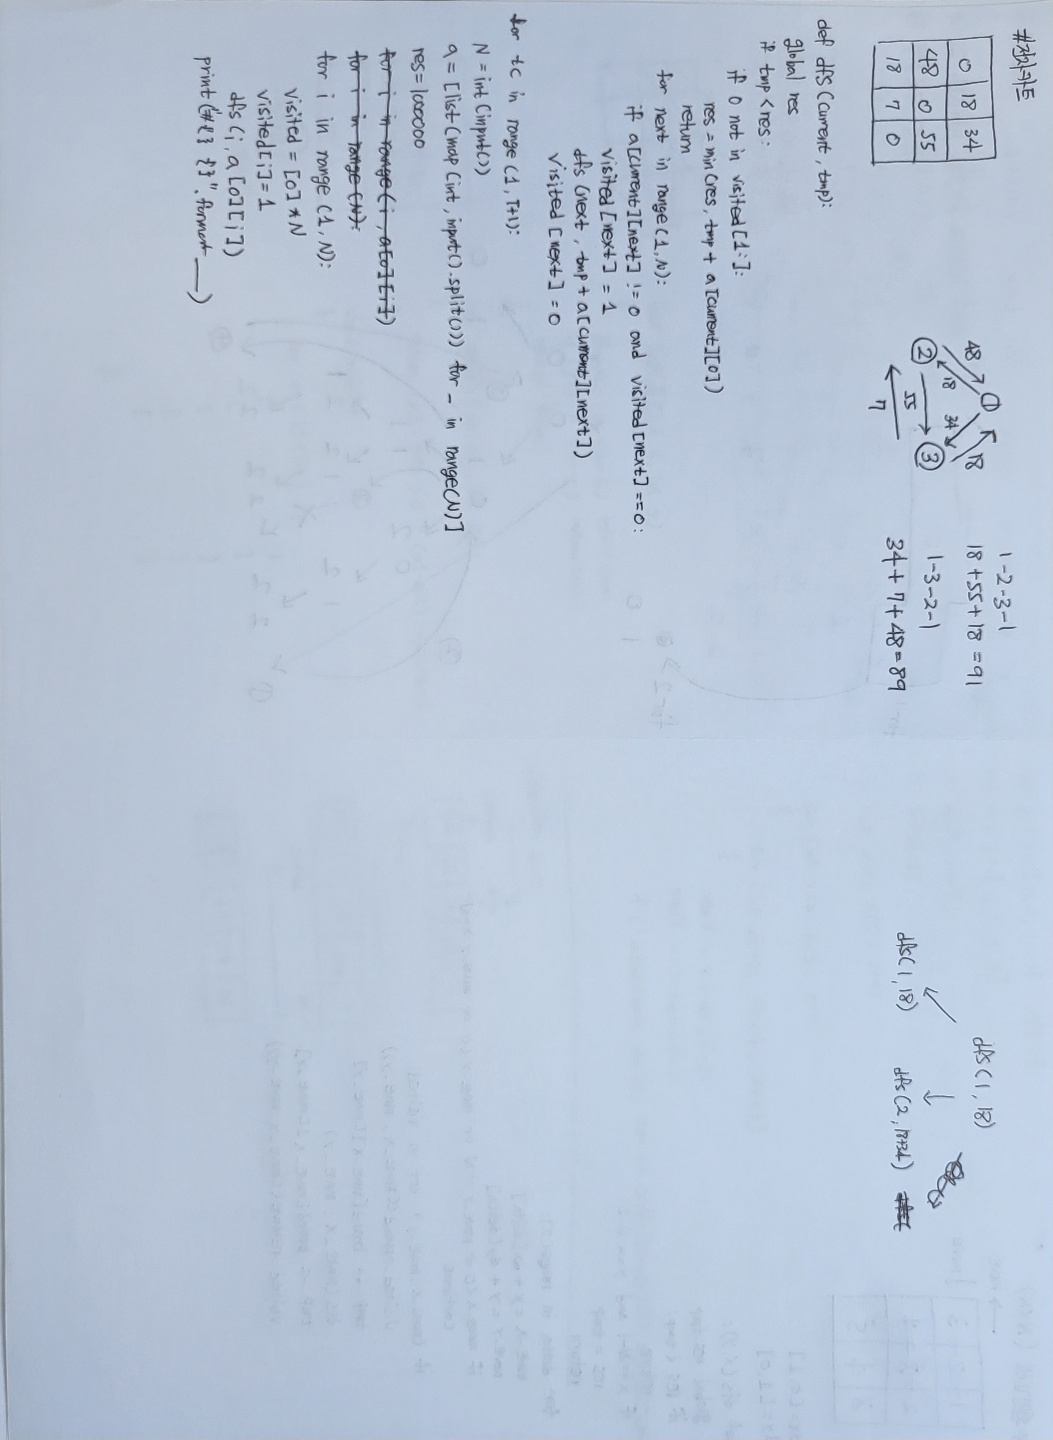 #전자카트
0 18 34
48 0 55
18 7 0
1
48 18 34 18
2 3
55
7
1-2-3-1
18+55+18=91
1-3-2-1
34+7+48=89
dfs(1,18)
dfs(1,18) dfs(2,18+34)
def dfs(current, tmp):
global res
if tmp<res:
if 0 not in visited[1:]:
res = min(res, tmp + a[current][0])
return
for next in range(1,N):
if a[current][next] != 0 and visited[next]==0:
visited[next] = 1
dfs(next, tmp+a[current][next])
visited[next] = 0
for tc in range(1, T+1):
N = int(input())
a = [list(map(int, input().split())) for _ in range(N)]
res=1000000
for i in range(i, a[0][i])
for i in range(N):
for i in range(1,N):
visited = [0]*N
visited[i]=1
dfs(i, a[0][i])
print("#{} {}".format___)